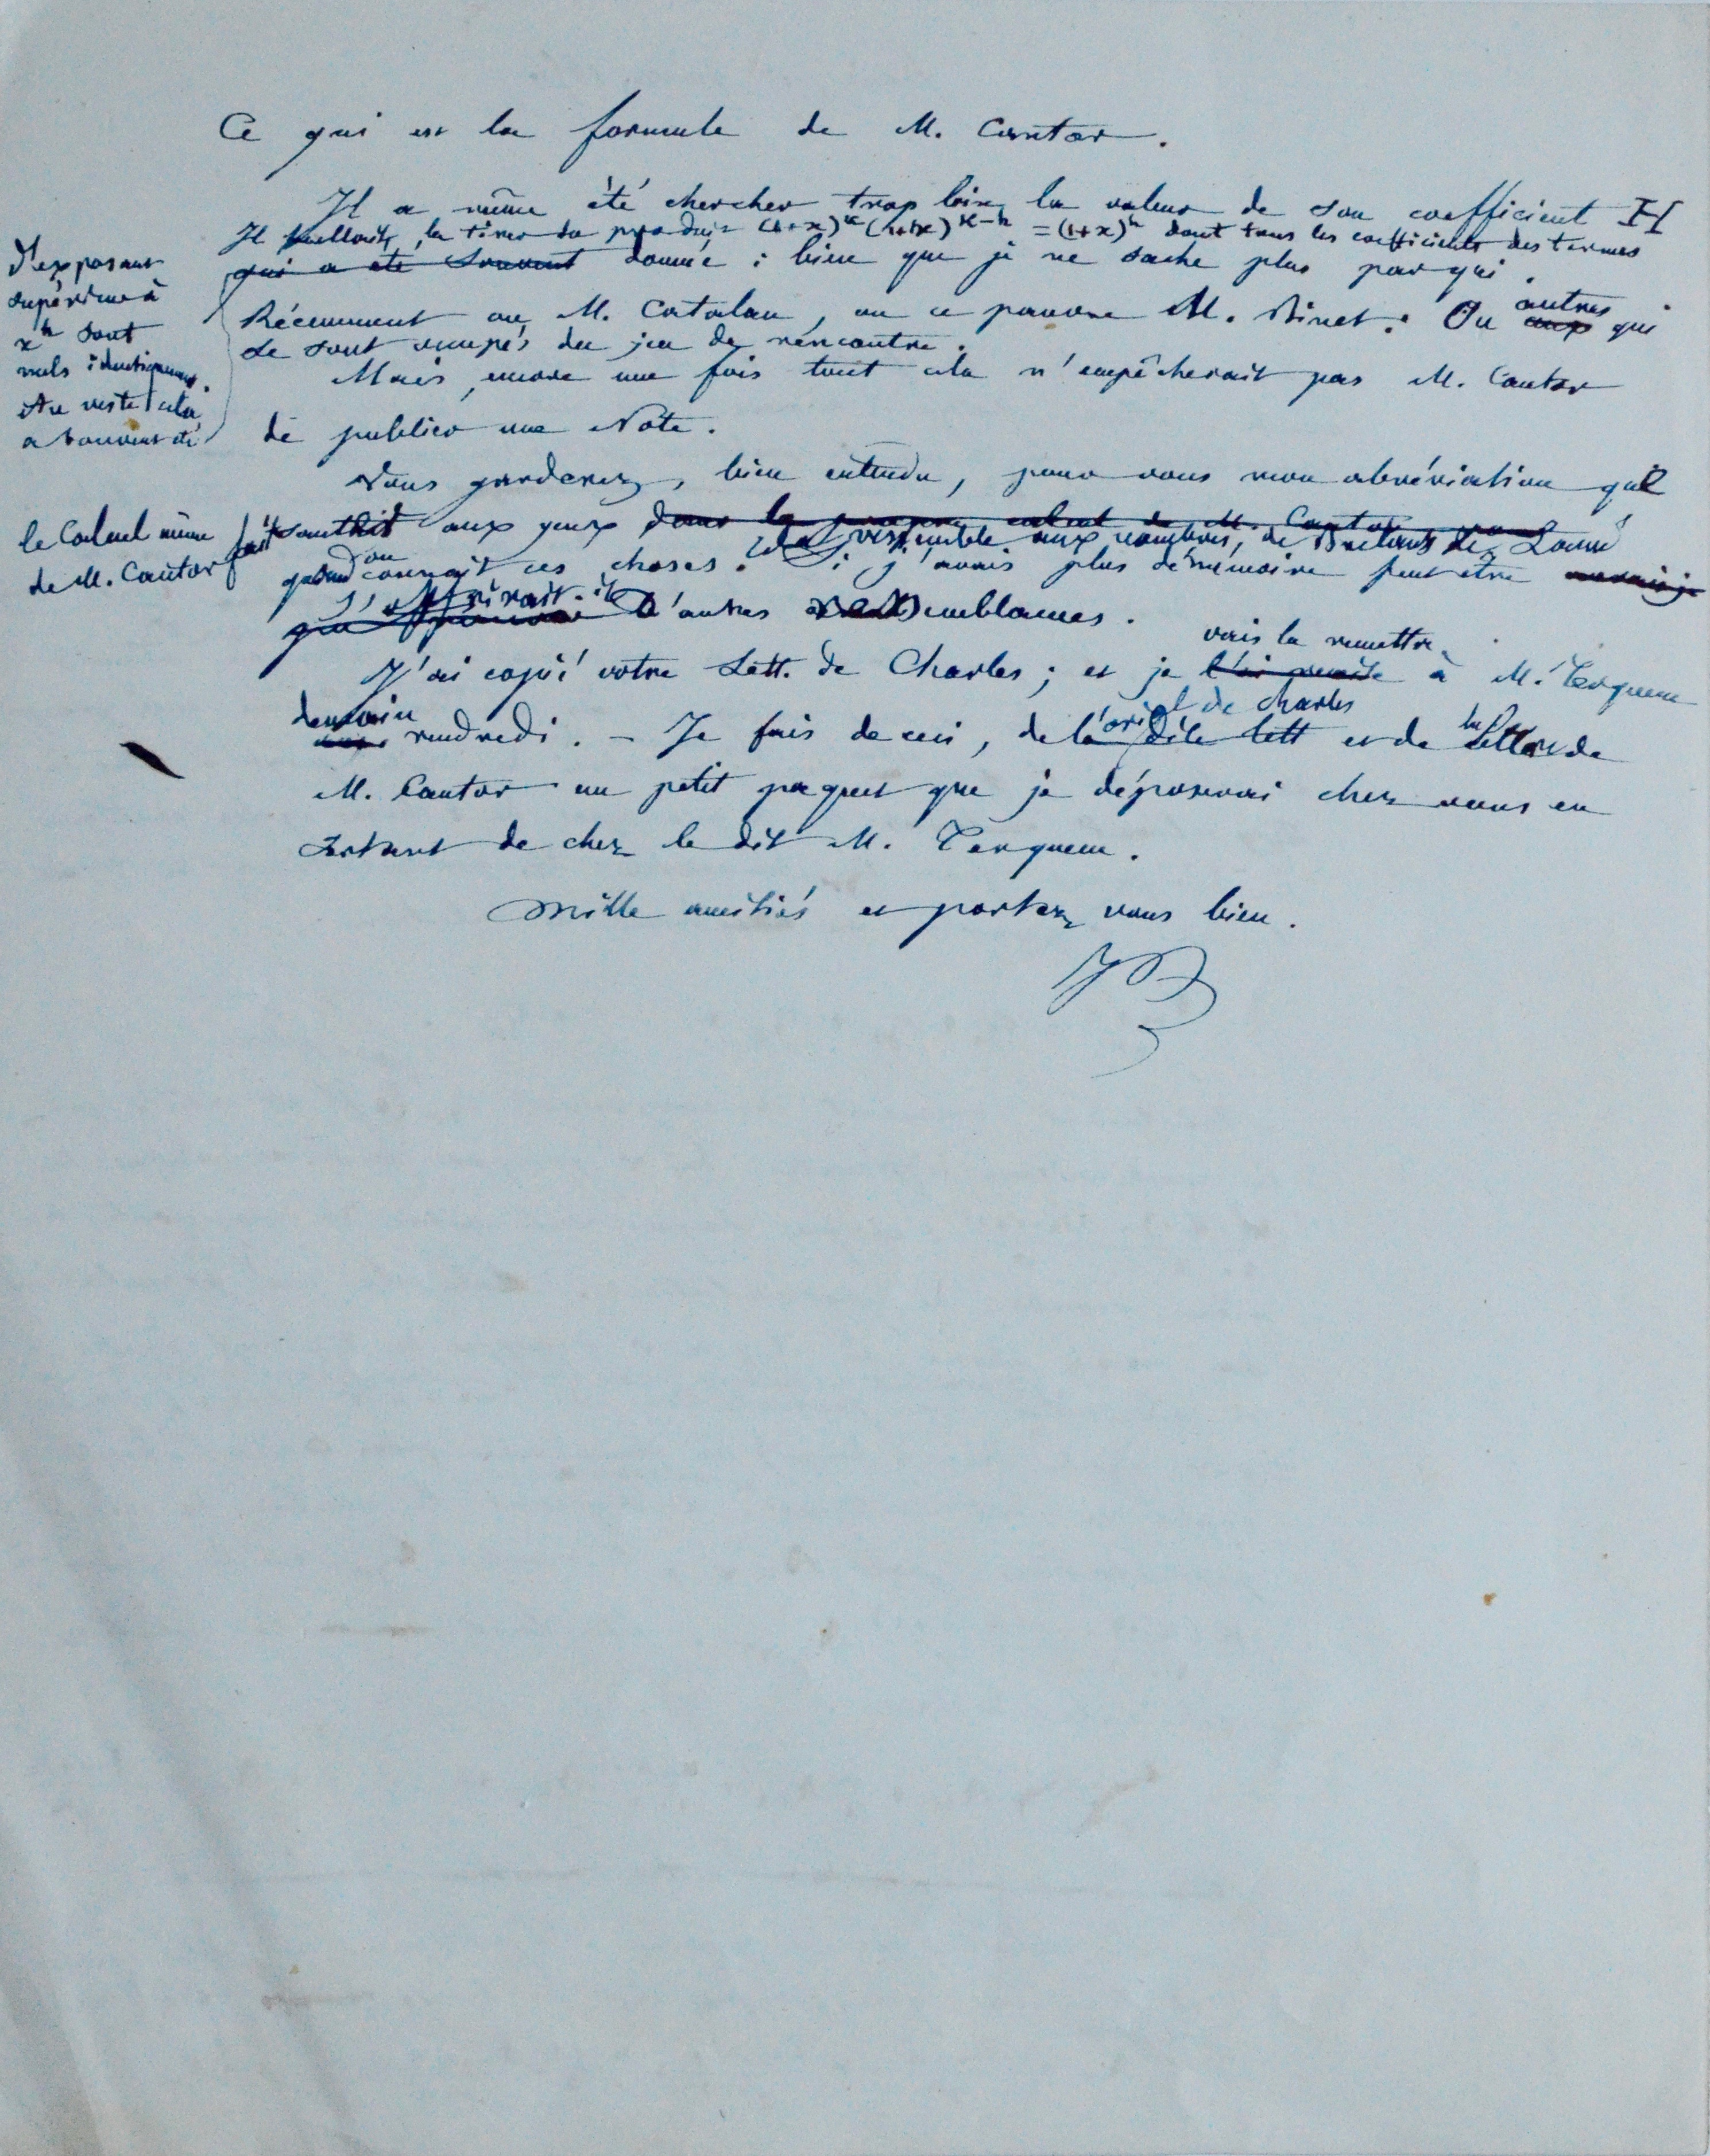 Ce qui est la formule de M. Cantor.
Il a même été chercher trop loin la valeur de son coefficient H
Il falloit la tirer du produit (1+x)^k (1+x)^{k-h} = (1+x)^h dont tous les coefficients des termes
d'exposant
supérieur à
x^h sont
nuls identiquement.
Au reste cela
a souvent été
qui a été souvent donnée ; bien que je ne sache plus par qui.
Récemment ou M. Catalan, ou ce pauvre M. Binet. Ou autres qui
se sont occupés du jeu de rencontre.
Mais, encore une fois tout cela n'empêcherait pas M. Cantor
de publier une Note.
Vous garderez, bien entendu, pour vous mon abréviation qui
le Calcul même
de M. Cantor fait
aux yeux dans le propre calcul de M. Cantor
quand on connait ces choses. Cela ressemble aux nombres, de
Si j'avais plus de mémoire peut être
s'offrirait-il d'autres ressemblances.
J'ai copié votre Lett. de Charles ; et je vais la remettre à M. Terquem
demain vendredi. – Je fais de ceci, de l'orig^l de Charles dite lett et de la Lettre de
M. Cantor un petit paquet que je déposerai chez vous en
sortant de chez le dit M. Terquem.
Mille amitiés et portez vous bien.
JB